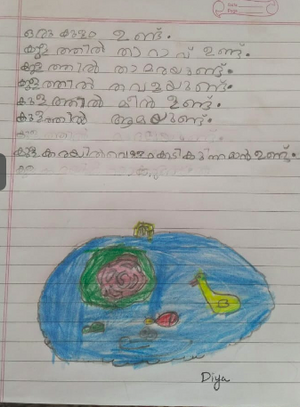 ഒരു കുളം ഉണ്ട്.
കുളത്തിൽ താറാവ് ഉണ്ട്.
കുളത്തിൽ താമരയുണ്ട്.
കുളത്തിൽ തവളയുണ്ട്.
കുളത്തിൽ മീൻ ഉണ്ട്.
കുളത്തിൽ ആമയുണ്ട്.
കുളക്കരയിൽ വെള്ളം കുടികുന്ന മാൻ ഉണ്ട്.
Diya